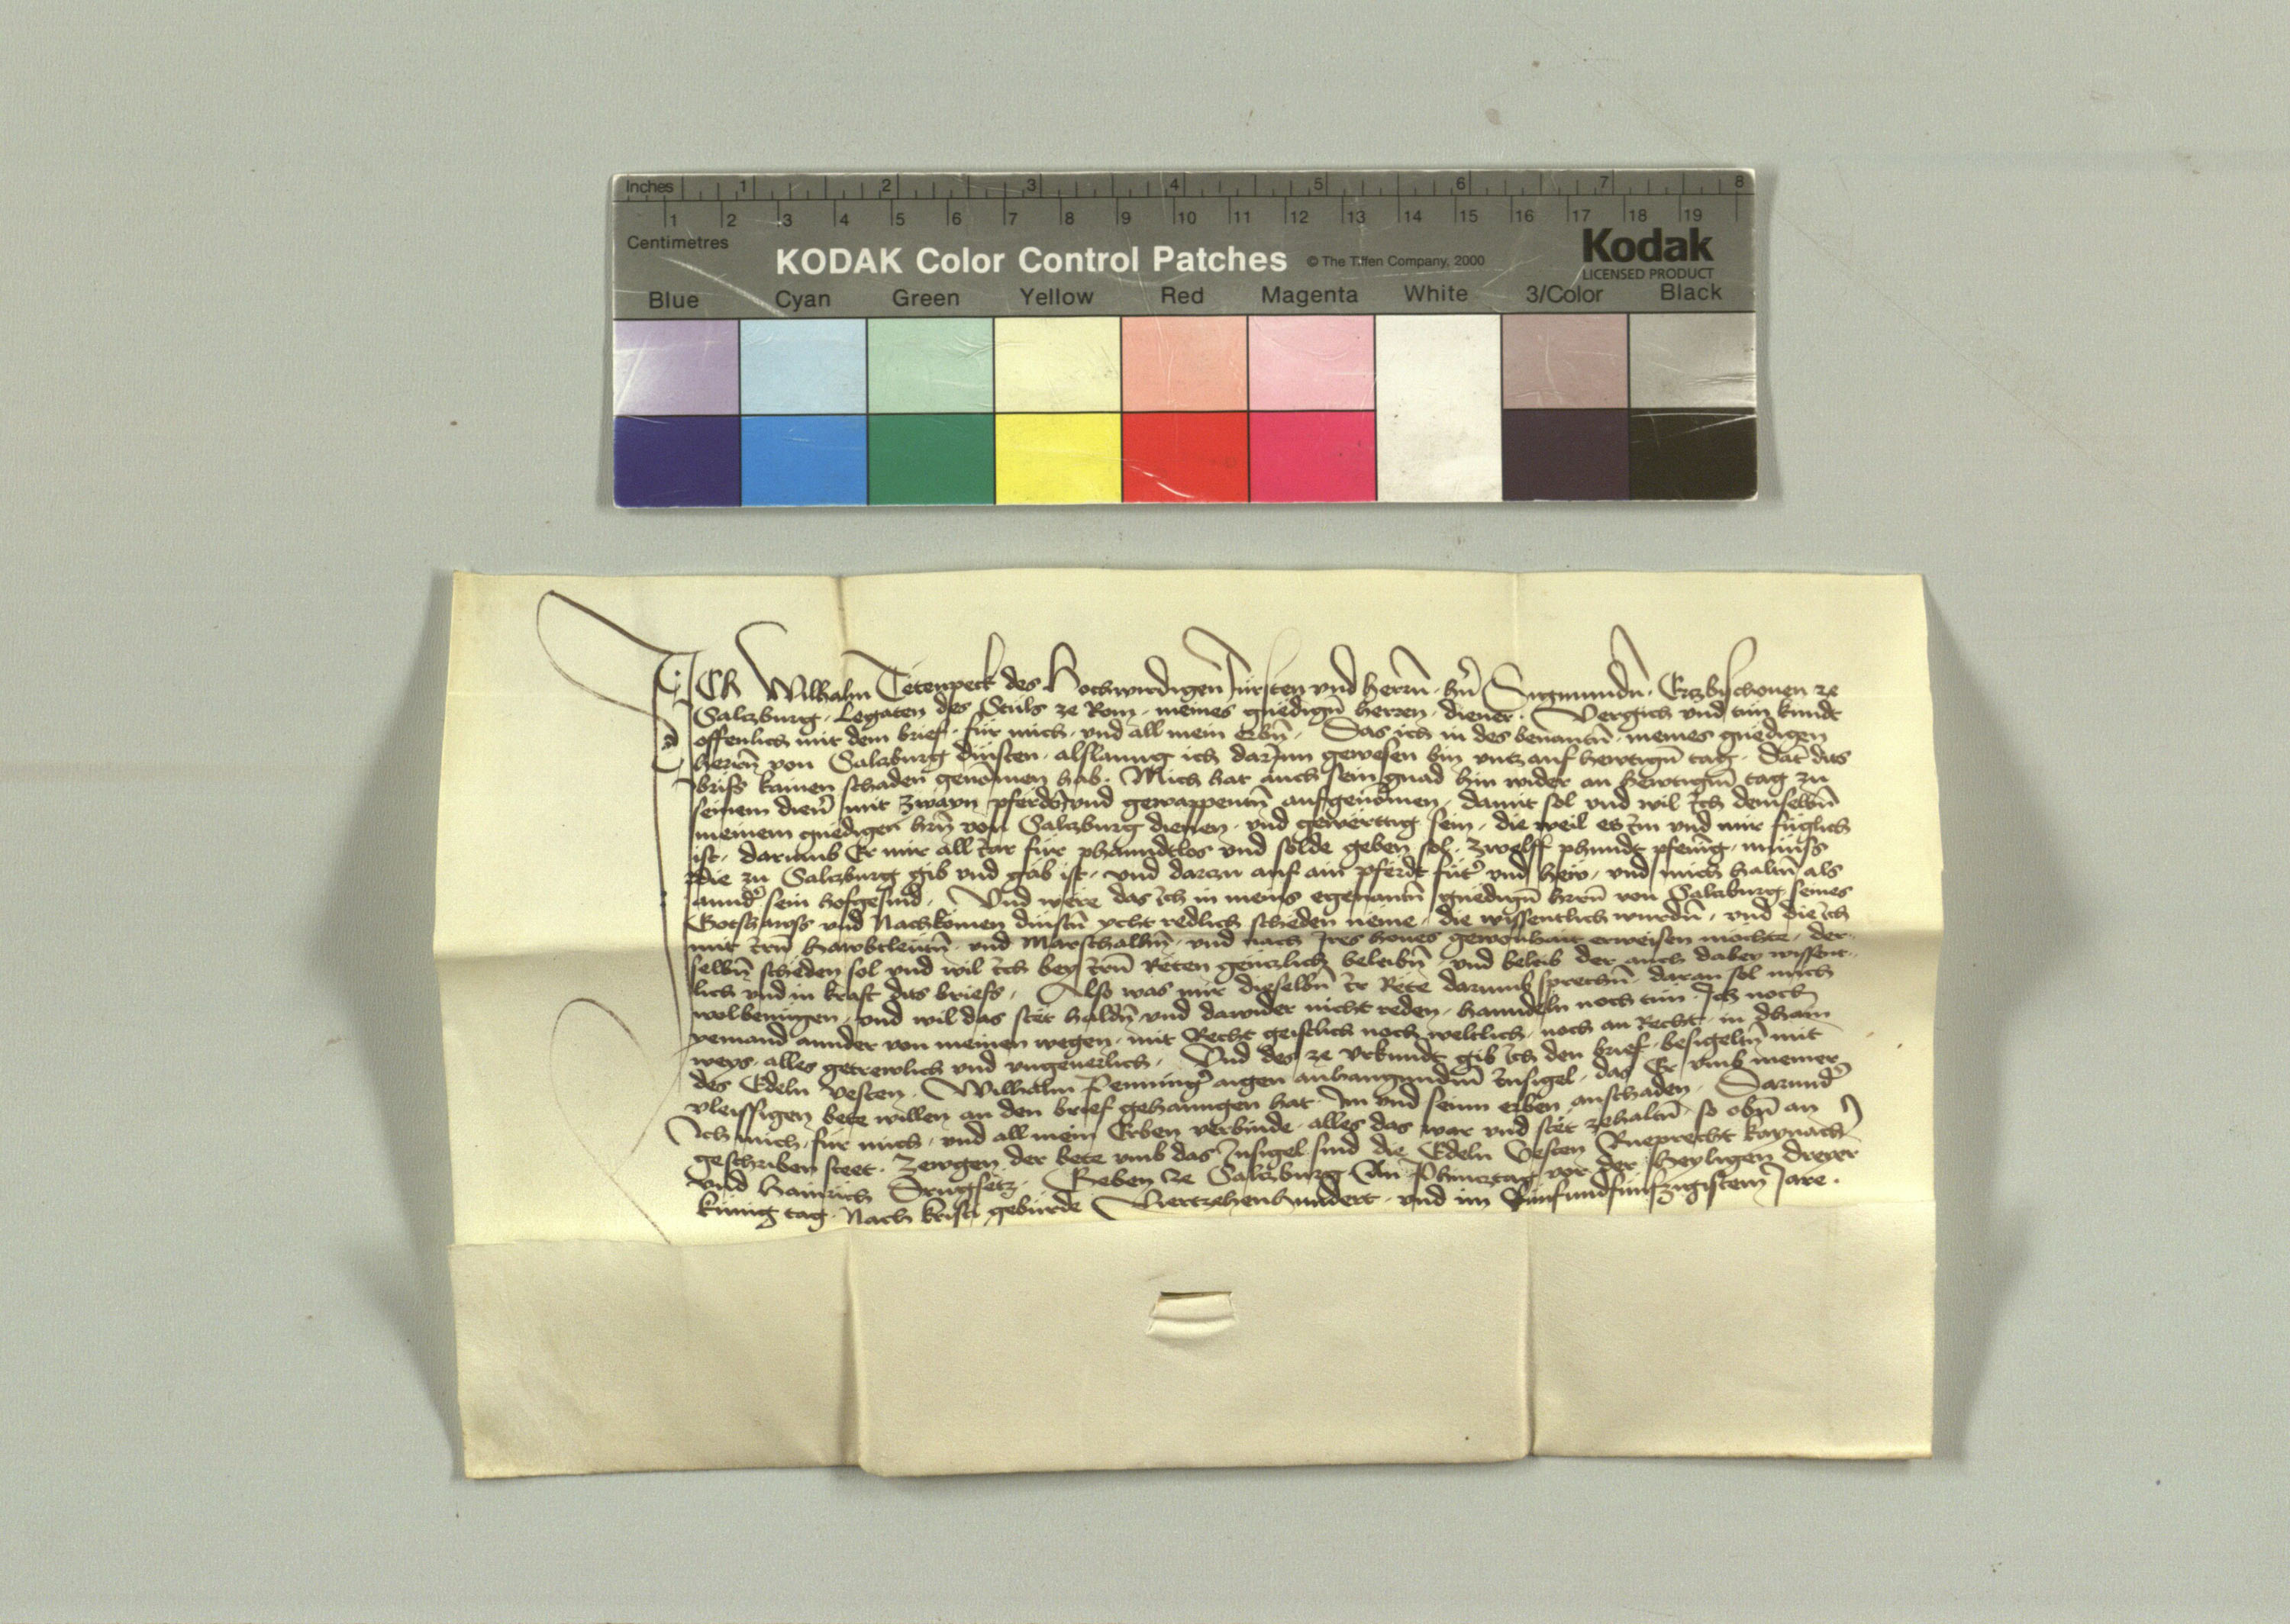 Inches 1 2 3 4 5 6 7 8
1 2 3 4 5 6 7 8 9 10 11 12 13 14 15 16 17 18 19
Centimetres
KODAK Color Control Patches © The Tiffen Company, 2000 Kodak
LICENSED PRODUCT
Blue Cyan Green Yellow Red Magenta White 3/Color Black
ICh Wilhalm Tetenpeck des Hochwirdigen Fürsten vnd herrn̄ · hn̄ Sigmundn̄ · Ertzbischouen ze
Salczburg · Legaten des Stuls ze Rom · meines gnedign̄ herren · diener · Vergich vnd tun kundt
offenlich mit dem brief · für mich · vnd all mein erbn̄ · Das ich in des benantn̄ · meines gnedigen
herrn̄ von Salczburg dinsten · alslanng ich darjnn gewesen bin vntz auf hewtign̄ tag · dat̄ dits
briefs kainen schaden genomen hab · Mich hat auch sein gnad hin wider an hewtign̄ tag zu
seinem dien̄ mit zwayn pferdn̄ vnd gewappentn̄ aufgenomen · damit sol vnd wil ich demselbn̄
meinem gnedigen hrn̄ von Salczburg dienen · vnd gewerttig sein · die weil es im vnd mir fuglich
ist · darumb Er mir all iar für phanndtlos vnd solde geben sol · zwelff phundt pfenig · munss
die zu Salczburg gib vnd gab ist · vnd darczu auf ain pferdt füt̄ vnd hew · vnd mich haltn̄ als
annd̄ sein hofgesind · Vnd were das ich in meins egenantn̄ gnedign̄ hern̄ von Salczburg seines
Gotshawss vnd Nachkomen dinstn̄ ycht redlich scheden neme · die wissentlich wurdn̄ · vnd die ich
mit irn̄ hawbtleutn̄ · vnd Marschalhn̄ · vnd nach Jres houes gewonhait erweisen möchte · der
selbn̄ scheden sol vnd wil ich bey irn̄ Reten genczlich beleibn̄ · vnd beleib der auch dabey wissent
lich vnd in kraft dits briefs · Also was mir dieselbn̄ ir Rete darumb sprechn̄ · daran sol mich
wolbenügen · vnd wil das stet haldn̄ vnd dawider nicht reden · hanndeln noch tun · Ich noch
yemand annder von meinen wegen · mit Recht geistlich noch weltlich · noch an Recht · in dhain
weys · alles getrewlich vnd vngeuerlich · Vnd des ze vrkundt gib ich den brief · besigeltn̄ mit
des Edeln vesten · Wilhalm Penninḡ aigen anhangundm̄ Insigel · das Er vmb meiner
vleissigen bete willen an den brief gehanngen hat · Im vnd seinn erben anschaden · Darund̄
Ich mich · für mich · vnd all mein Erben verbinde · alles das war vnd stet zehaltn̄ · so obn̄ an
geschriben steet · Zewgen der bete vmb das Insigel sind die Edeln Vesten Rueprecht kaynach̄
vnd Hainrich Drugsetz · Geben ze Salczburg An Phincztag vor der Heyligen dreyer
kunig tag · Nach kristi geburde Viertzehenhundert · vnd im Fünfundfünfzigistem Jare ·